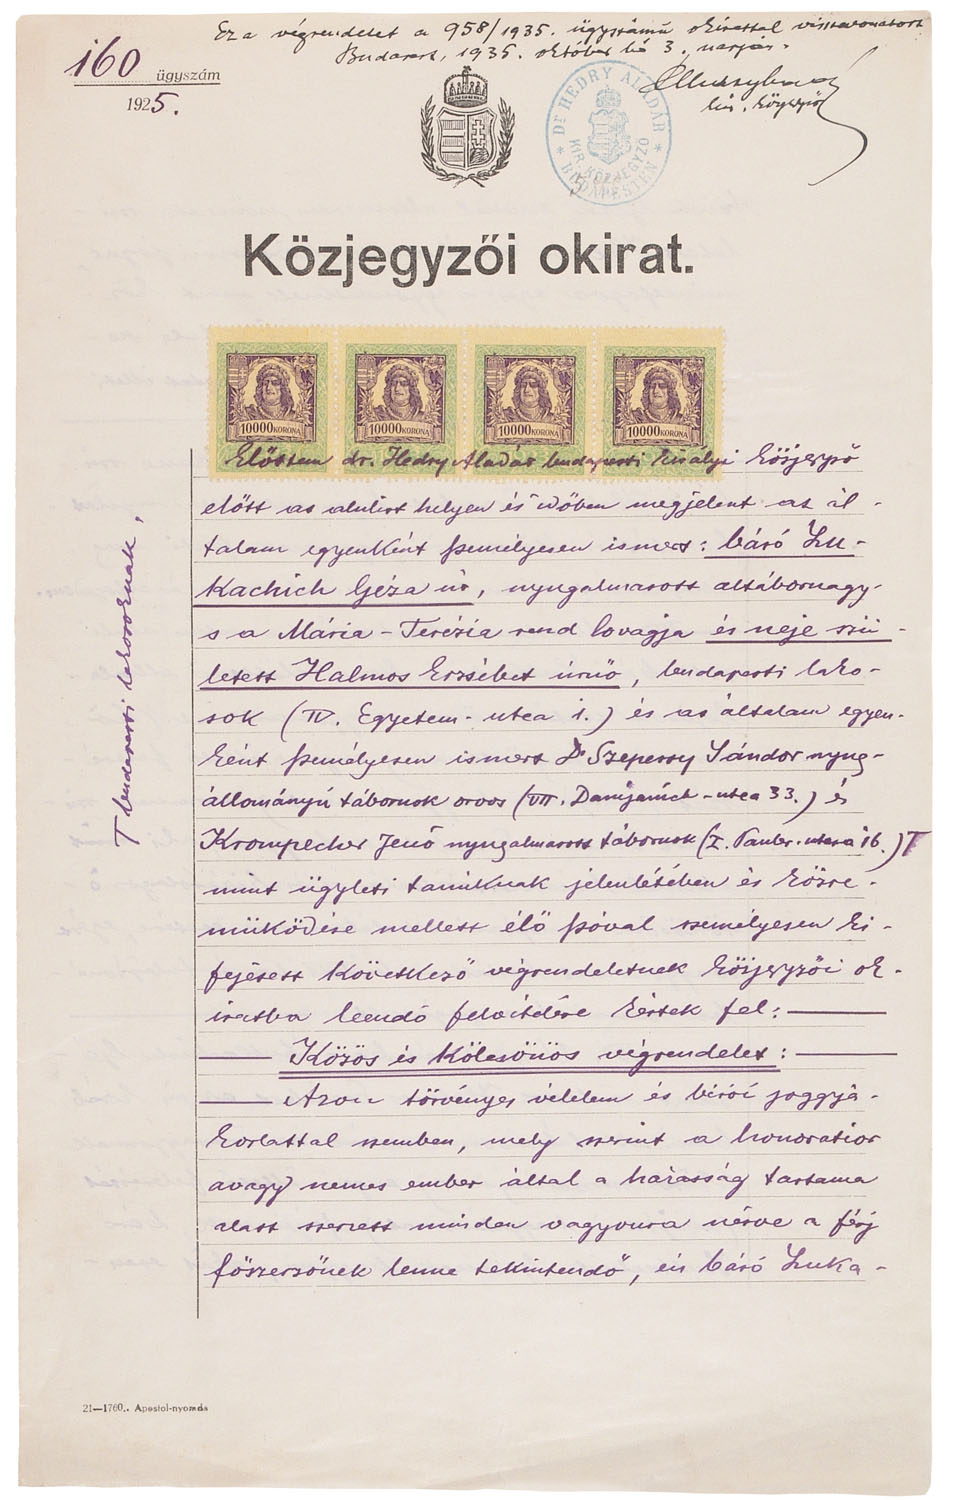 Ez a végrendelet a 958/1935. ügyszámú okirattal visszavonatott.
Budapest, 1935. október hó 3. napján.
kir. közjegyző
160 ügyszám
1925.
Dr HEDRY ALADÁR
KIR. KÖZJEGYZŐ
BUDAPESTEN
Közjegyzői okirat.
10000 KORONA
10000 KORONA
10000 KORONA
10000 KORONA
Előttem dr. Hedry Aladár budapesti királyi közjegyző
előtt az alulirt helyen és időben megjelent az ál-
talam egyenként személyesen ismert: báró Lu-
kachich Géza úr, nyugalmazott altábornagy
s a Mária-Terézia rend lovagja és neje szü-
letett Halmos Erzsébet úrnő, budapesti lako-
sok (IV. Egyetem-utca 1.) és az általam egyen-
ként személyesen ismert Dr Szepessy Sándor nyug-
állományú tábornok orvos (VII. Damjanich-utca 33.) és
Krompecher Jenő nyugalmazott tábornok (I. Pauler-utca 16.) T
T budapesti lakosoknak,
mint ügyleti tanúknak jelenlétében és közre-
müködése mellett élő szóval személyesen ki-
fejezett következő végrendeletnek közjegyzői ok-
iratba leendő felvételére kértek fel:
Közös és kölcsönös végrendelet:
Azon törvényes vélelem és birói joggya-
korlattal szemben, mely szerint a honoratior
avagy nemes ember által a házasság tartama
alatt szerzett minden vagyonra nézve a férj
főszerzőnek lenne tekintendő, én báró Luka-
21—1760. Apostol-nyomda